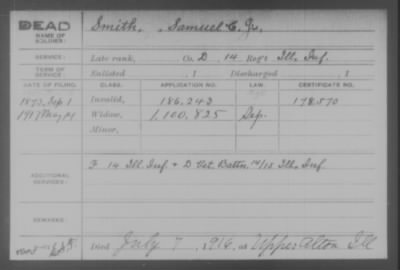 DEAD
NAME OF SOLDIER: Smith, Samuel C. Jr.
SERVICE: Late rank, Co. D, 14 Reg't Ill. Inf.
TERM OF SERVICE: Enlisted , 1 Discharged , 1
DATE OF FILING. CLASS. APPLICATION NO. LAW. CERTIFICATE NO.
1873, Sep. 1 Invalid, 186.243 178.570
Widow, 1,100,825
Minor,
ADDITIONAL SERVICES: F 14 Ill. Inf. + D Vet. Battn. 14/15 Ill. Inf.
REMARKS:
Died July 7, 1916, at Upper Alton Ill